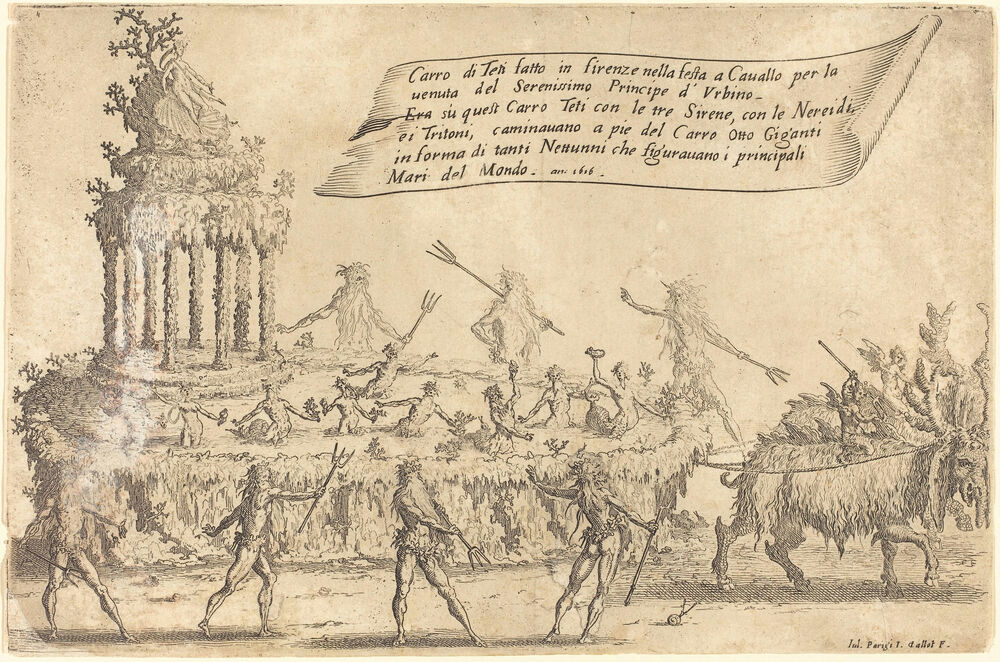 Carro di Teti fatto in firenze nella festa a Cauallo per la
uenuta del Serenissimo Principe d' Vrbino.
Era sù quest Carro Teti con le tre Sirene, con le Nereidi,
e i Tritoni, caminauano a pie del Carro Otto Giganti
in forma di tanti Nettunni che figurauano i principali
Mari del Mondo. an: 1616
Iul. Parigi I. Callot F.